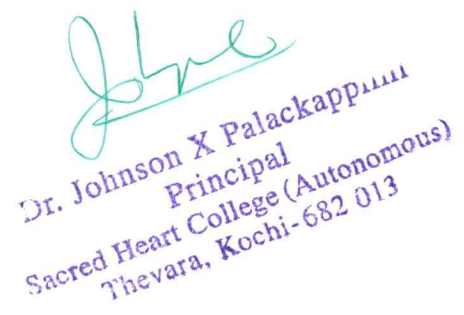 Dr. Johnson X
Principal
Sacred Heart College (Autonomous)
Thevara, Kochi-682 013